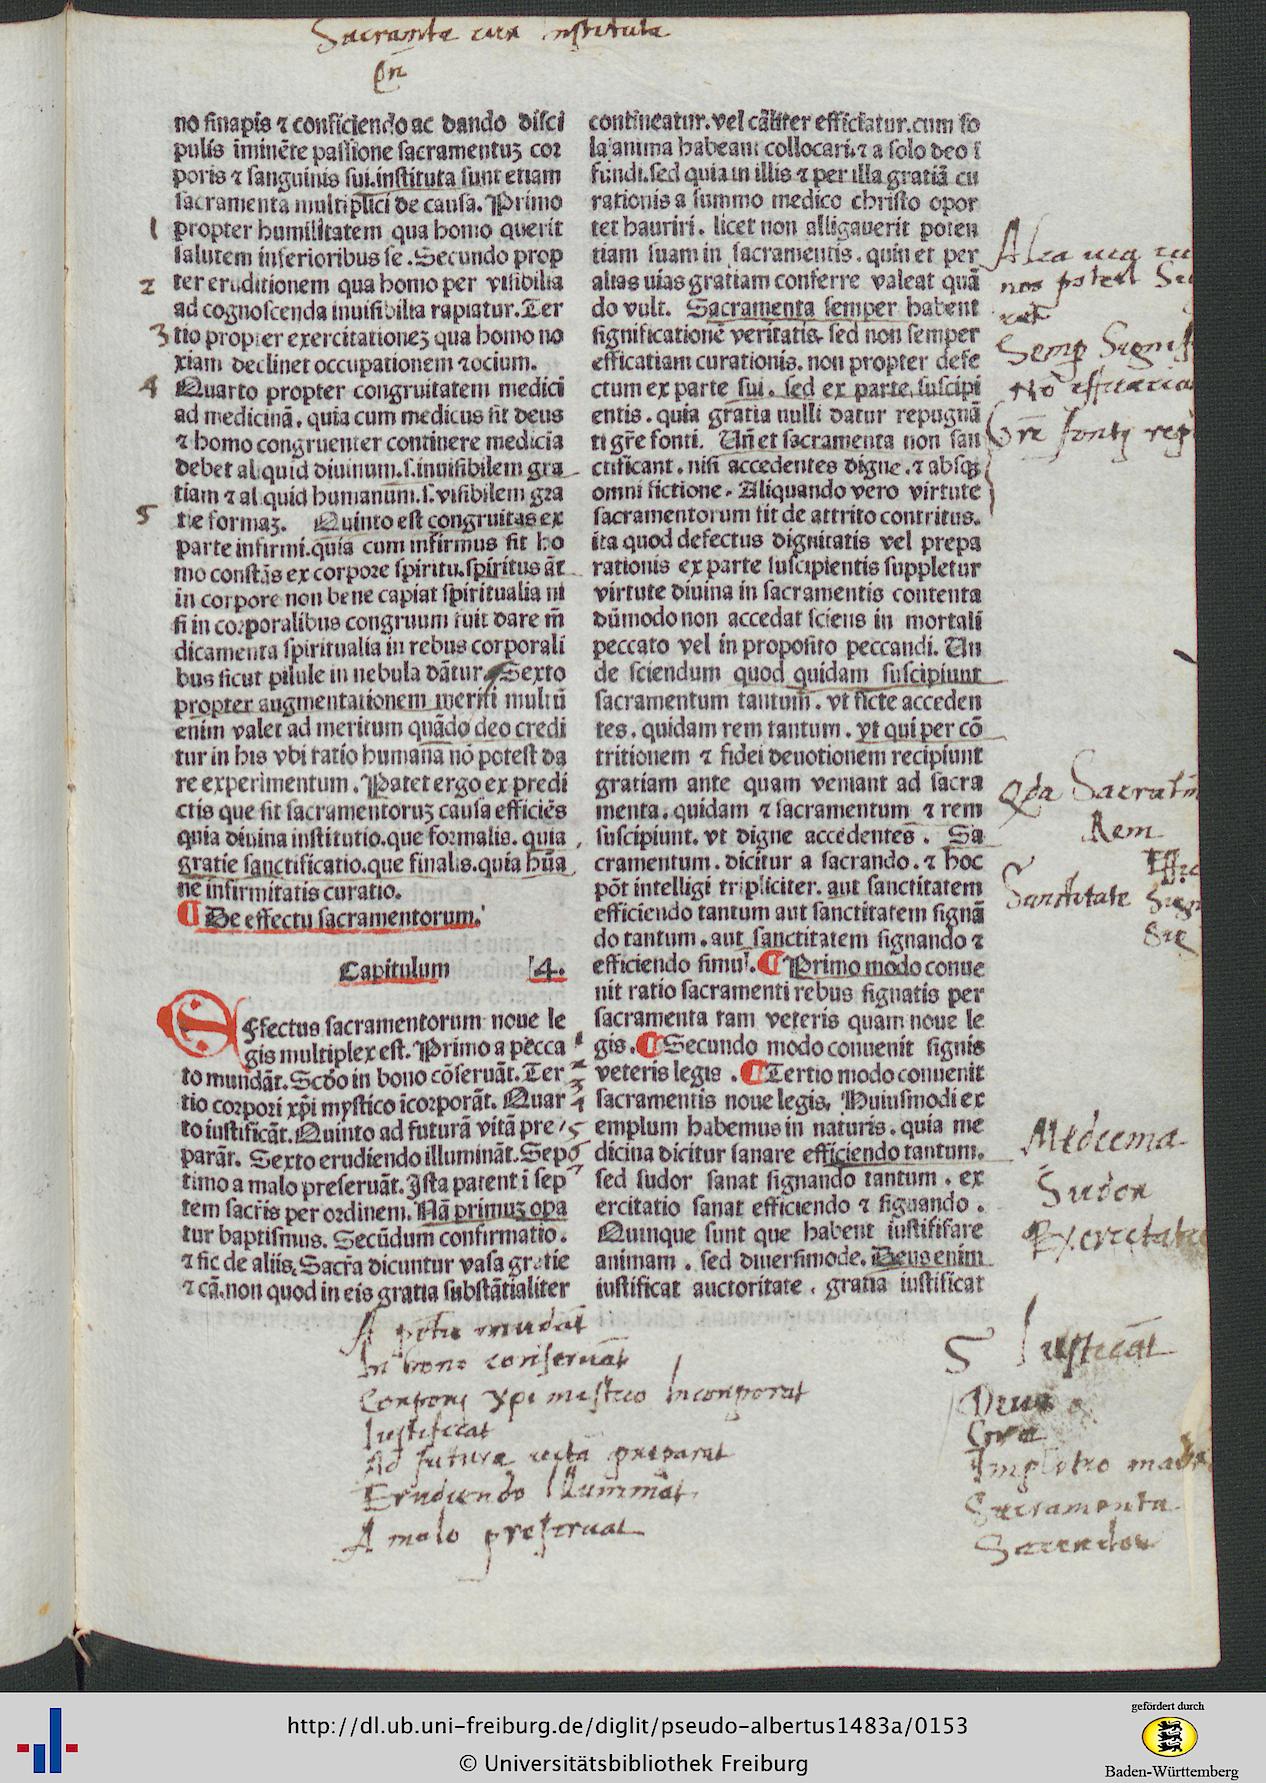 Sacramēta cur instituta
no sinapis ⁊ conficiendo ac dando disci
pulis īminēte passione sacramentuꝫ cor
poris ⁊ sanguinis sui.instituta sunt etiam
sacramenta multiplici de causa. Primo
1 propter humilitatem qua homo querit
salutem inferioribus se. Secundo prop
2 ter eruditionem qua homo per visibilia
ad cognoscenda inuisibilia rapiatur. Ter
3 tio propter exercitationeꝫ qua homo no
xiam declinet occupationem ⁊ocium.
4 Quarto propter congruitatem medici
ad medicinā. quia cum medicus sit deus
⁊ homo congruenter continere medicīa
debet aliquid diuinum.s.inuisibilem gra
tiam ⁊ aliquid humanum.s.visibilem gra
5 tie formaꝫ. Quinto est congruitas ex
parte infirmi.quia cum infirmus sit ho
mo constās ex corpore spiritu.spiritus āt
in corpore non bene capiat spiritualia ni
si in corporalibus congruum fuit dare m̄
dicamenta spiritualia in rebus corporali
bus sicut pilule in nebula dātur. Sexto
propter augmentationem meriti multū
enim valet ad meritum quādo deo credi
tur in his vbi ratio humana nō potest da
re experimentum. Patet ergo ex predi
ctis que sit sacramentoruꝫ causa efficiēs
quia diuina institutio.que formalis. quia
gratie sanctificatio.que finalis.quia hūa
ne infirmitatis curatio.
¶ De effectu sacramentorum.
Capitulum 4.
Effectus sacramentorum noue le
gis multiplex est. Primo a pecca
to mundāt. Scdo in bono cōseruāt. Ter
tio corpori xp̄i mystico īcorporāt. Quar
to iustificāt. Quinto ad futurā vitā pre
parāt. Sexto erudiendo illumināt. Sep
timo a malo preseruāt. Ista patent ī sep
tem sacr̄is per ordinem. Nā primuꝫ opa
tur baptismus. Secūdum confirmatio.
⁊ sic de aliis. Sacra dicuntur vasa gratie
⁊ cā.non quod in eis gratia substātialiter
A pctis mūdat
In bono conseruat
Corpori xpi mistico Incorporat
Iustificat
Ad futurā uitā preparat
Erudiendo Illuminat
A malo preseruat
contineatur.vel cāliter efficiatur.cum so
la anima habeant collocari.⁊ a solo deo ī
fundi.sed quia in illis ⁊ per illa gratiā cu
rationis a summo medico christo opor
tet hauriri. licet non alligauerit poten
tiam suam in sacramentis. quin et per
alias uias gratiam conferre valeat quā
do vult. Sacramenta semper habent
significationē veritatis. sed non semper
efficatiam curationis. non propter defe
ctum ex parte sui. sed ex parte suscipi
entis. quia gratia nulli datur repugnā
ti gr̄e fonti. Un̄ et sacramenta non san
ctificant. nisi accedentes digne. ⁊ absqꝫ
omni fictione. Aliquando vero virtute
sacramentorum fit de attrito contritus.
ita quod defectus dignitatis vel prepa
rationis ex parte suscipientis suppletur
virtute diuina in sacramentis contenta
dūmodo non accedat sciens in mortali
peccato vel in proposito peccandi. Un
de sciendum quod quidam suscipiunt
sacramentum tantum. vt ficte acceden
tes. quidam rem tantum. vt qui per cō
tritionem ⁊ fidei deuotionem recipiunt
gratiam ante quam veniant ad sacra
menta. quidam ⁊ sacramentum ⁊ rem
suscipiunt. vt digne accedentes. Sa
cramentum. dicitur a sacrando. ⁊ hoc
pōt intelligi tripliciter. aut sanctitatem
efficiendo tantum aut sanctitatem signā
do tantum. aut sanctitatem signando ⁊
efficiendo simul. ¶ Primo modo conue
nit ratio sacramenti rebus signatis per
sacramenta tam veteris quam noue le
gis. ¶ Secundo modo conuenit signis
veteris legis. ¶ Tertio modo conuenit
sacramentis noue legis. Huiusmodi ex
emplum habemus in naturis. quia me
dicina dicitur sanare efficiendo tantum.
sed sudor sanat signando tantum. ex
ercitatio sanat efficiendo ⁊ signando.
Quinque sunt que habent iustifitare
animam. sed diuersimode. Deus enim
iustificat auctoritate. gratia iustificat
Semp
Rem
Sanctitate
Medicina
Sudor
Exercitatio
5 Iustificāt
Deus
Sacramenta
Sacerdos
http://dl.ub.uni-freiburg.de/diglit/pseudo-albertus1483a/0153
© Universitätsbibliothek Freiburg
gefördert durch
Baden-Württemberg